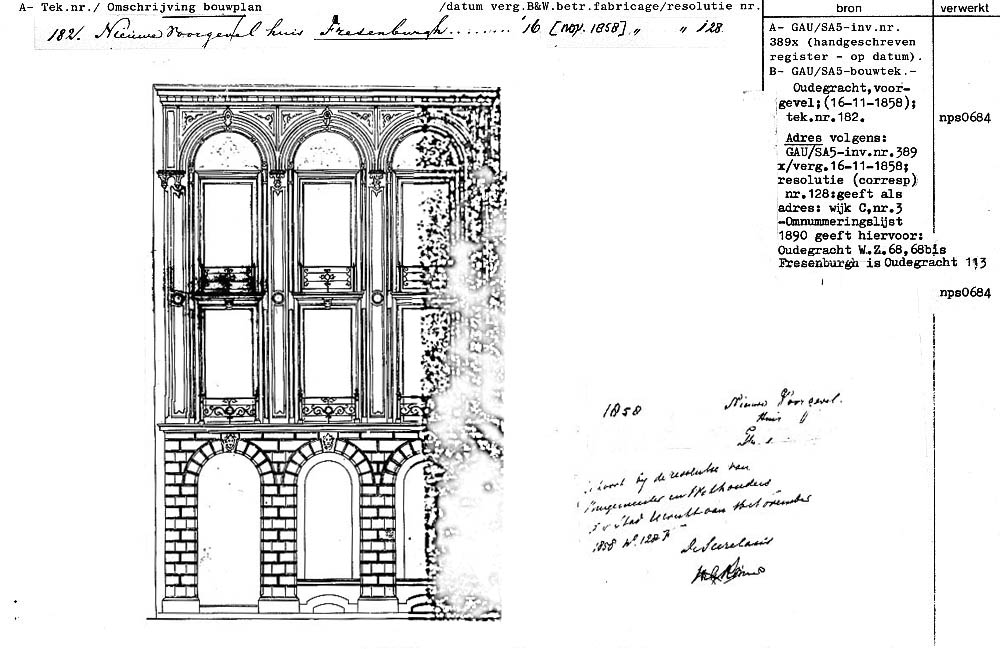 A- Tek.nr./ Omschrijving bouwplan /datum verg.B&W.betr.fabricage/resolutie nr.
bron
verwerkt
182. Nieuwe Voorgevel huis Fresenburgh........ '16 [nov. 1858] „ „ 128.
A- GAU/SA5-inv.nr.
389x (handgeschreven
register - op datum).
B- GAU/SA5-bouwtek.-
Oudegracht,voor-
gevel;(16-11-1858);
tek.nr.182.
nps0684
Adres volgens:
GAU/SA5-inv.nr.389
x/verg.16-11-1858;
resolutie (corresp)
nr.128:geeft als
adres: wijk C,nr.3
-Omnummeringslijst
1890 geeft hiervoor:
Oudegracht W.Z.68,68bis
Fresenburgh is Oudegracht 113
nps0684
1858
Nieuwe Voorgevel.
huis
hoort bij de resolutie van
Burgemeester en Wethouders
Stad Utrecht van 16 November
1858 No 128
De Secretaris